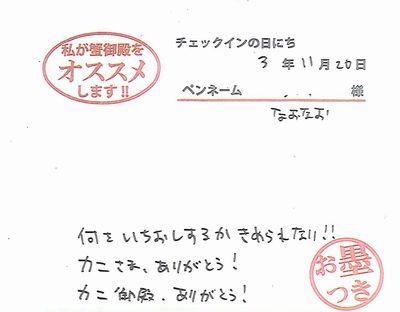 私が蟹御殿を
オススメ
します!!
チェックインの日にち
3年11月20日
ペンネーム 様
なおなお
何をいちおしするかきめられない!!
カニさま、ありがとう!
カニ御殿、ありがとう!
お墨
つき